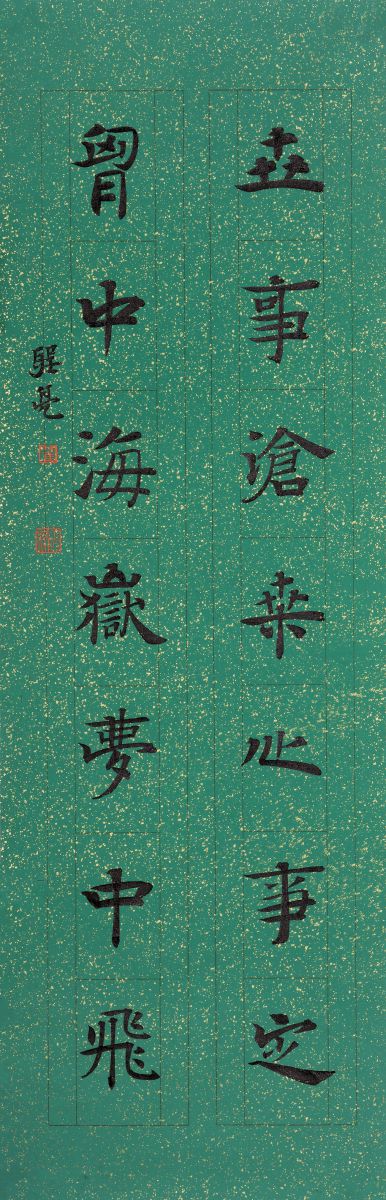 世事滄桒心事定
胷中海嶽夢中飛
亮